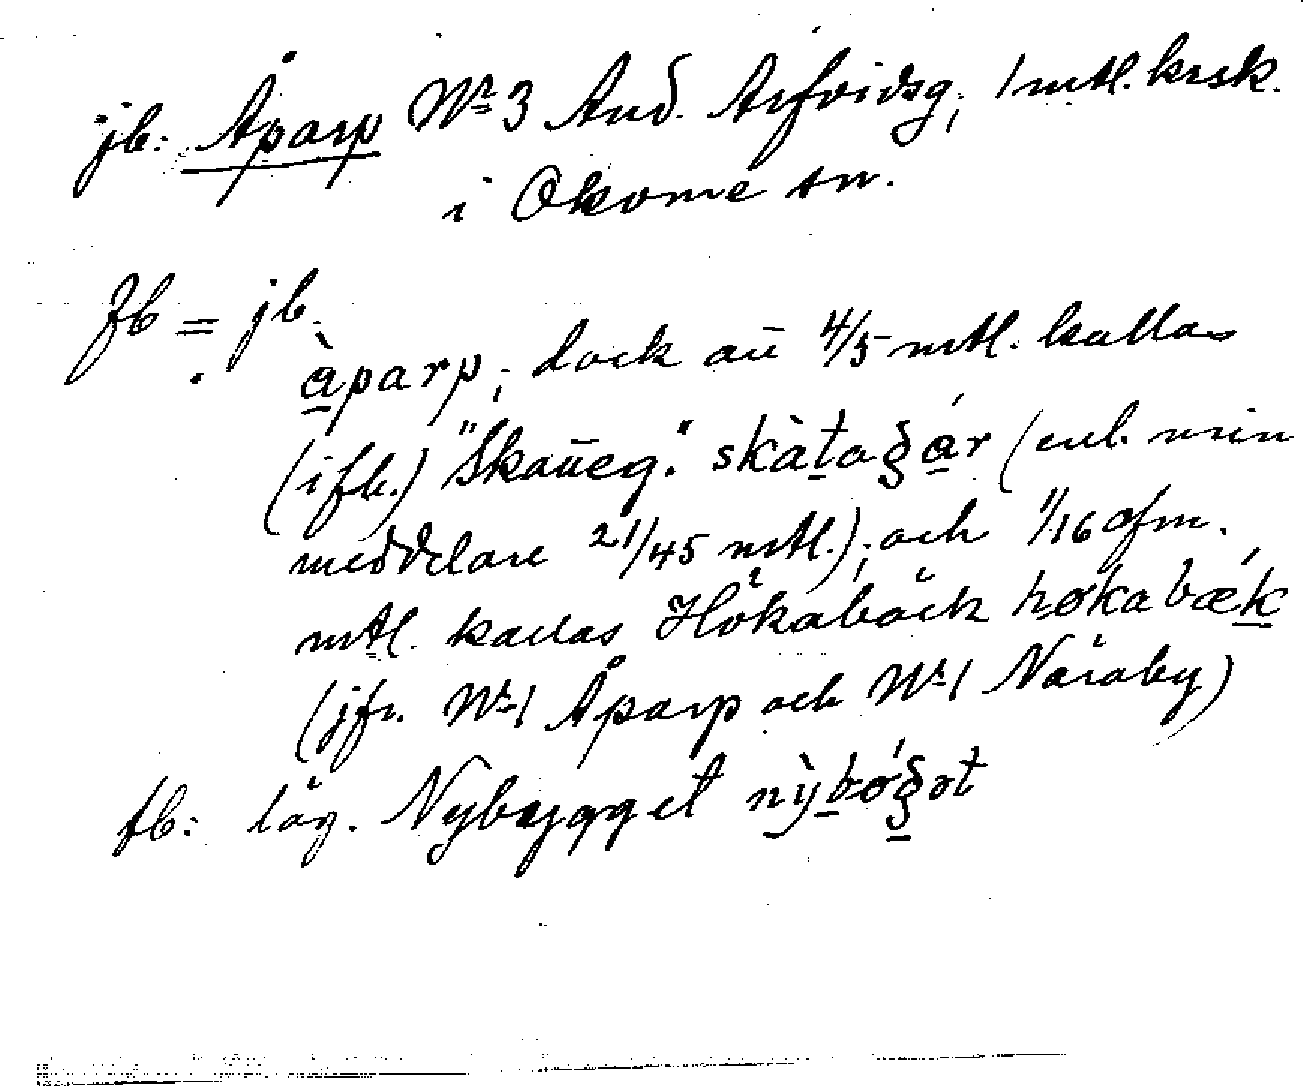 jb: Åparp Nr 3 And. Arfvidsg; 1 mtl. krsk.
i Okome sn.
fb = jb.
àparp; dock än 4/5 mtl. kallas
(i fb.) "Skateg." skàtagár (enl. min
meddelare 21/45 mtl.); och 1/16 ofm.
mtl. kallas Hökabäck høkabǽk
(jfr. Nr 1 Åparp och Nr 1 Näraby)
fb: läg. Nybygget nỳbǿgət